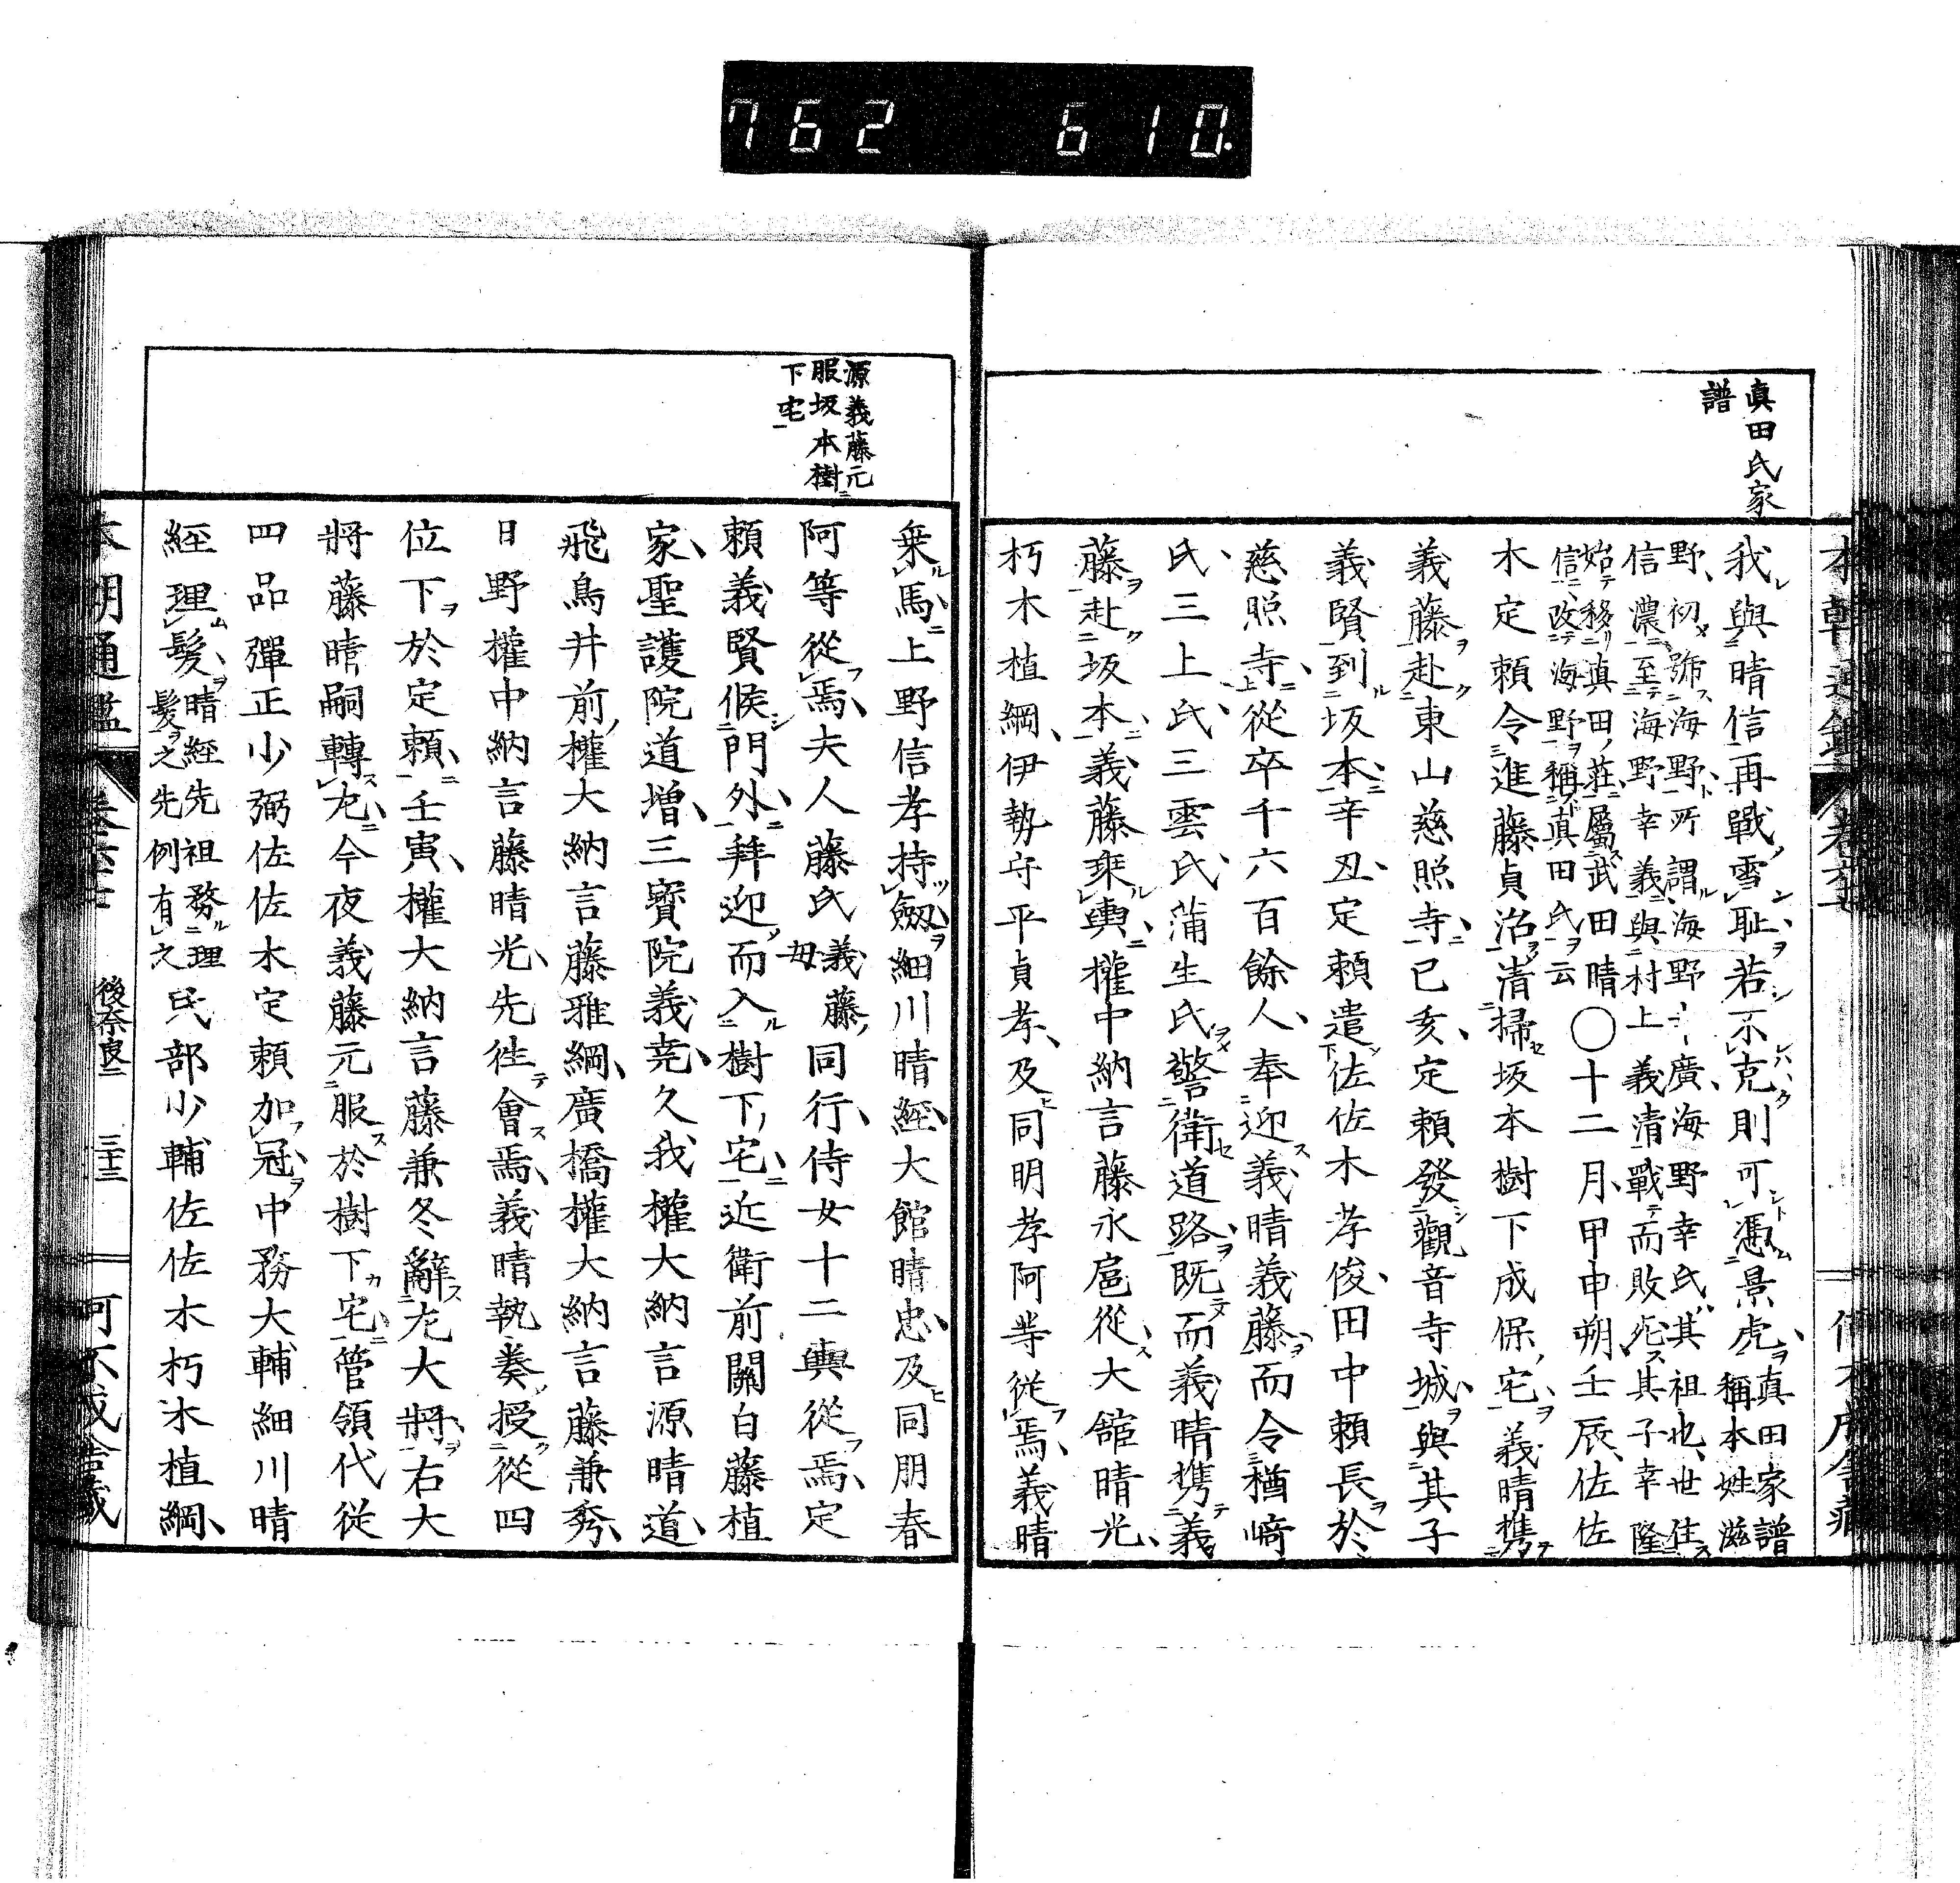 762 610.
眞田氏家
譜
我與晴信再戰雪耻若不克則可憑景虎眞田家譜
稱本姓滋
野初號海野所謂海野廣海野幸氏其祖也世住
信濃至海野幸義與村上義清戰而敗死其子幸隆
始移眞田莊屬武田晴
信改海野稱眞田氏云
〇十二月甲申朔壬辰佐佐
木定頼令進藤貞治清掃坂本樹下成保宅義晴携
義藤赴東山慈照寺己亥定頼發觀音寺城與其子
義賢到坂本辛丑定頼遣佐佐木孝俊田中頼長於
慈照寺從卒千六百餘人奉迎義晴義藤而令楢﨑
氏三上氏三雲氏蒲生氏警衛道路既而義晴携義
藤赴坂本義藤乘輿權中納言藤永扈從大舘晴光
朽木植綱伊勢守平貞孝及同明孝阿等從焉義晴
源義藤元
服坂本樹
下宅
乗馬上野信孝持劔細川晴經大館晴忠及同朋春
阿等從焉夫人藤氏義藤
母同行侍女十二輿從焉定
頼義賢候門外拜迎而入樹下宅近衛前關白藤植
家聖護院道増三寳院義尭久我權大納言源晴道
飛鳥井前權大納言藤雅綱廣橋權大納言藤兼秀
日野權中納言藤晴光先徃會焉義晴執奏授從四
位下於定頼壬寅權大納言藤兼冬辭左大將右大
將藤晴嗣轉左今夜義藤元服於樹下宅管領代從
四品彈正少弼佐佐木定頼加冠中務大輔細川晴
經理髮晴經先祖務理
髮之先例有之民部少輔佐佐木朽木植綱
本朝通鑑 後奈良二 三十三